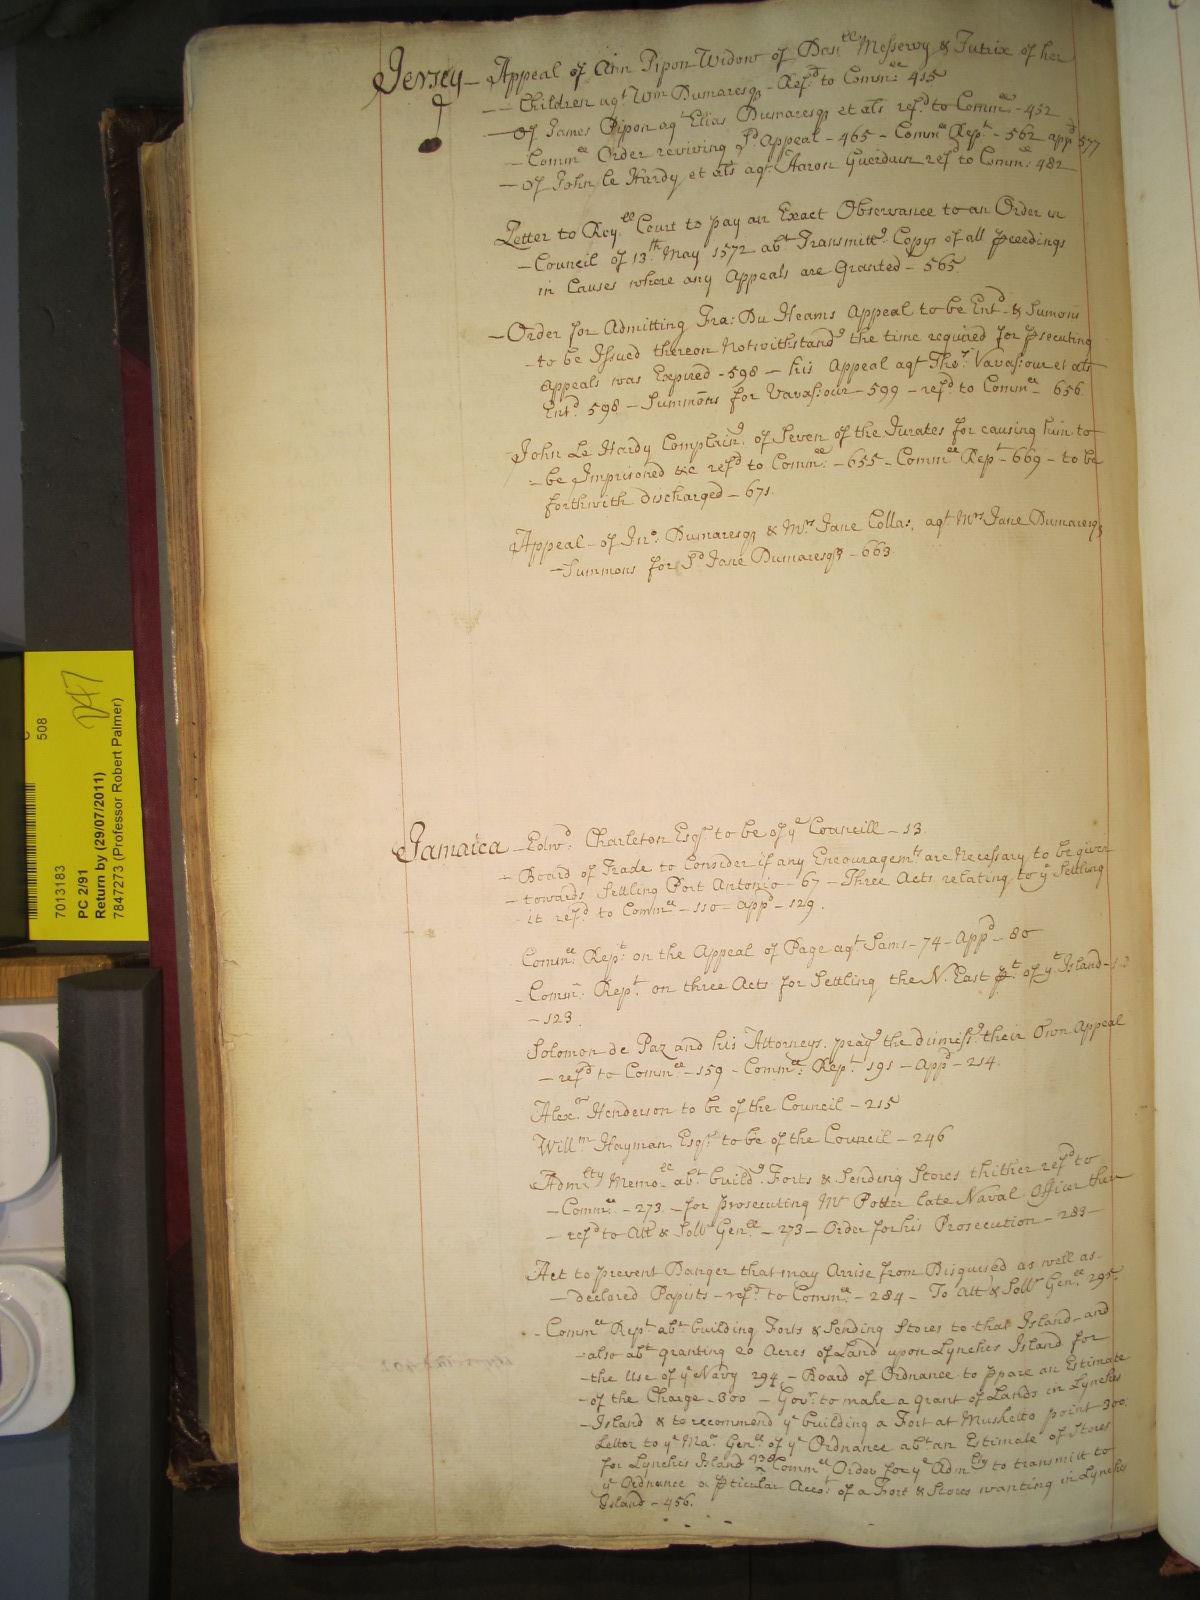 Jersey – Appeal of Ann Pipon Widow of Messervy & Tutrix of her
– Children agt. Wm Dumaresq – Refd to Commee 415
– of James Pipon agt Elias Dumaresq et als refd to Commee – 452
– Commee Order reviving sd Appeal – 465 – Commee Rept – 562 appd 577
– of John le Hardy et als agt Aaron Guerdain refd to Commee: 482
Letter to Roy:ll Court to pay an Exact Observance to an Order in
– Council of 13th May 1572 abt Transmittg Copys of all pceedings
in Causes where any Appeals are Granted – 565
– Order for Admitting Fra: Du Heams Appeal to be Entd & Sumons
– to be Issued thereon Notwithstandg the time required for psecuting
Appeals was Expired – 598 – his Appeal agt Thos. Vavassour et als
Entd 598 – Summons for Vavassour – 599 – refd to Commee 656
John Le Hardy Complaing of Seven of the Jurates for causing him to
– be Imprisoned &c refd to Commee – 655 – Commee Rept – 669 – to be
forthwith discharged – 671.
Appeal – of Jno. Dumaresq & Mrs Jane Collas, agt Mrs Jane Dumaresq
– Summons for sd Jane Dumaresq – 663
Jamaica – Edwd: Charleton Esqr to be of ye Councill – 13
– Board of Trade to Consider if any Encouragemts are Necessary to be given
– towards Settling Port Antonio – 67 – Three Acts relating to ye Settling
it refd to Commee – 110 – appd – 129.
Commee Rept on the Appeal of Page agt Sams – 74 – Appd – 80
– Commee Rept. on three Acts for Settling the N. East pt of yt Island –
– 123.
Solomon de Paz and his Attorneys prayg the dismissg their Own Appeal
– refd to Commee – 159 – Commee Rept 191 – Appd – 214.
Alexr Henderson to be of the Council – 215
Willm Hayman Esqr to be of the Council – 246
Admlty Memo– abt buildg Forts & Sending Stores thither refd to
– Commee – 273 – for prosecuting Mr Potter late Naval Officer there
– refd to Att & Sollr Genll – 273 – Order for his Prosecution – 283
Act to prevent Danger that may Arrise from Disguised as well as
– declared Papists – refd to Commee – 284 – To Att & Sollr Genll 295
– Commee Rept abt building Forts & Sending Stores to that Island – and
– also abt granting 20 Acres of Land upon Lynches Island for
– the Use of ye Navy 294 – Board of Ordnance to ppare an Estimate
– of the Charge – 300 – Govr. to make a grant of Lands in Lynches
– Island & to recommend ye building a Fort at Musketto point 300.
Letter to ye Mar Genll of ye Ordnance abt an Estimate of Stores
for Lynches Island Commee Order for ye Admlty to transmitt to
ye Ordnance a pticular Accot of a Fort & Stores wanting in Lynches
Island – 456.
7013183
PC 2/91
Return by (29/07/2011)
7847273 (Professor Robert Palmer)
508
247